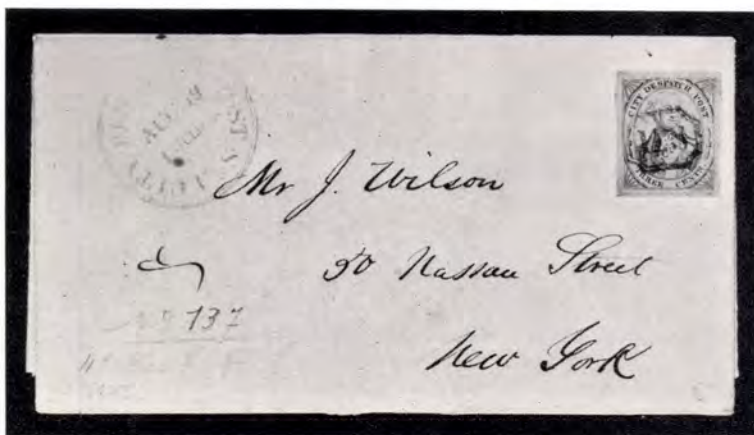 AUG 19
CITY DESPATCH POST
THREE CENTS
Mr J. Wilson
50 Nassau Street
New York
137